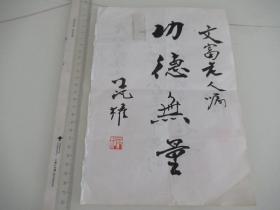 文富老人嘱
功德無量